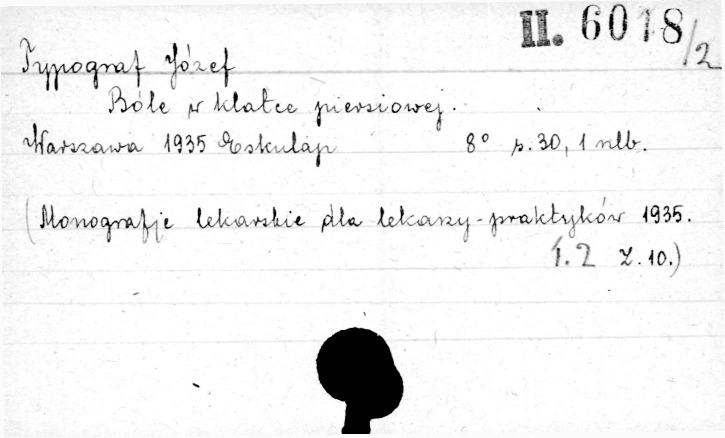 II. 6018/2
Typograf Józef
Bóle w klatce piersiowej.
Warszawa 1935 Eskulap 8° s. 30, 1 nlb.
(Monografje lekarskie dla lekarzy-praktyków 1935.
t. 2 Z. 10.)